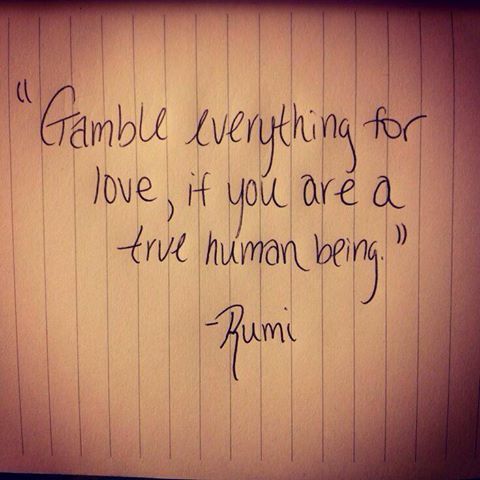 "Gamble everything for
love, if you are a
true human being."
-Rumi